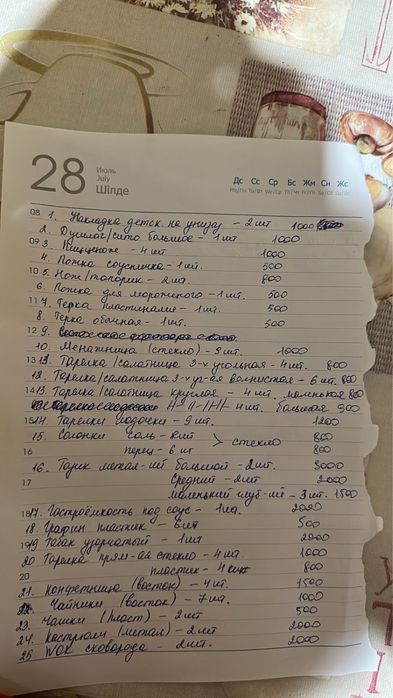 28
Июль
July
Шілде
Дс Сс Ср Бс Жм Сн Жс
08 1. Накладка детск. на унитаз - 2 шт 1000
2. Душлаг/сито большое - 1 шт 1000
09 3. - 4 шт 1000
4. Ложка соусника - 1 шт. 500
10 5. Нож/топорик - 2 шт. 800
6. Ложка для мороженого - 1 шт. 500
11 7. Терка пластинами - 1 шт. 500
8. Терка обычная - 1 шт. 500
12 9.
10. Менажница (стекло) - 9 шт. 1000
13 Тарелка/салатница 3-х угольная - 4 шт. 800
12. Тарелка/салатница 3-х уг-ая волнистая - 6 шт 800
14 13. Тарелка/салатница круглая - 4 шт. маленькая 800
4 шт. большая 900
15 14. Тарелки лодочки - 9 шт. 1200
15. Солонки соль - 6 шт > стекло 800
16 перец - 6 шт 800
16. Тарик метал-ий большой - 2 шт. 3000
17 средний - 2 шт 2000
маленький - 3 шт. 1500
18 17. Гастроёмкость под соус - 1 шт. 2000
18. Графин пластик - 6 шт 500
19 19 Табак узорчатый - 1 шт 2000
20 Тарелка прям-ая стекло - 4 шт. 1000
20 пластик - 4 шт 800
21. Конфетница (восток) - 4 шт. 1500
22. Чайники (восток) - 7 шт. 1000
23. Чашки (пласт) - 2 шт 500
24. Кастрюли (метал) - 2 шт 2000
25 WOK сковорода - 2 шт. 2000